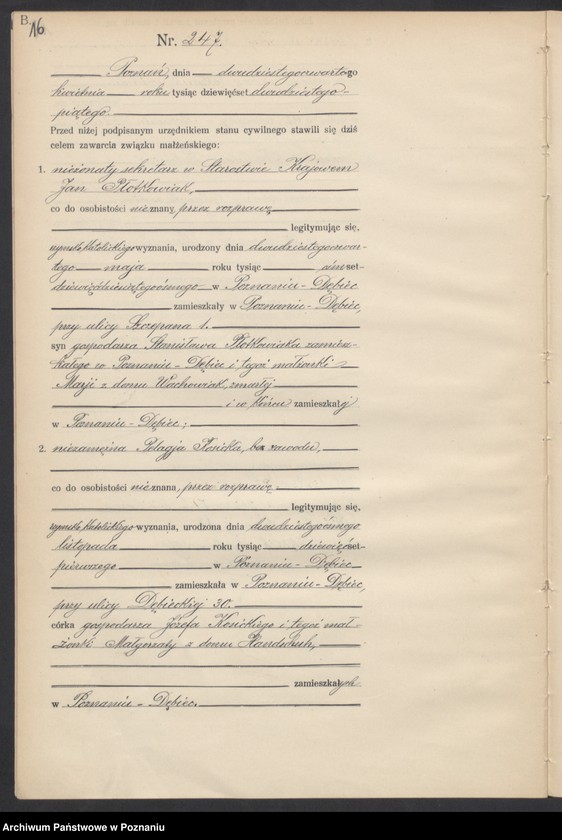 B.
16
Nr. 247.
Poznań, dnia dwudziestegoczwartego
kwietnia roku tysiąc dziewięćset dwudziestego
piątego.
Przed niżej podpisanym urzędnikiem stanu cywilnego stawili się dziś
celem zawarcia związku małżeńskiego:
1. nieżonaty sekretarz w Starostwie Krajowem
Jan Płotkowiak,
co do osobistości nieznany, przez rozprawę
legitymując się,
rzymsko katolickiego wyznania, urodzony dnia dwudziestegoczwar-
tego maja roku tysiąc ośmset-
dziewięćdziesiątegoósmego w Poznaniu - Dębiec
zamieszkały w Poznaniu - Dębiec,
przy ulicy Szczepana 1.
syn gospodarza Stanisława Płotkowiaka zamiesz-
kałego w Poznaniu - Dębiec i tegoż małżonki
Marji z domu Wachowiak, zmarłej
i w końcu zamieszkałej
w Poznaniu - Dębiec;
2. niezamężna Pelagja Kosicka, bez zawodu,
co do osobistości nieznana, przez rozprawę
legitymując się,
rzymsko katolickiego wyznania, urodzona dnia dwudziestegoósmego
listopada roku tysiąc dziewięćset-
pierwszego w Poznaniu - Dębiec
zamieszkała w Poznaniu - Dębiec,
przy ulicy Dębieckiej 30.
córka gospodarza Józefa Kosickiego i tegoż mał-
żonki Małgorzaty z domu Handschuh,
zamieszkałych
w Poznaniu - Dębiec.
Archiwum Państwowe w Poznaniu